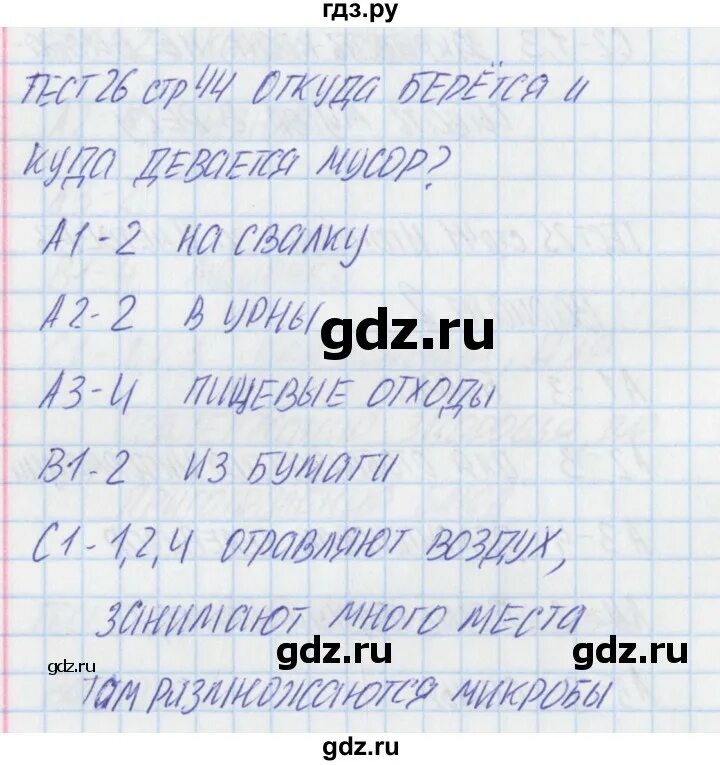 гдз.ру
ТЕСТ 26 стр 44 ОТКУДА БЕРЁТСЯ И
КУДА ДЕВАЕТСЯ МУСОР?
А1-2 НА СВАЛКУ
А2-2 В УРНЫ
gdz.ru
А3-4 ПИЩЕВЫЕ ОТХОДЫ
В1-2 ИЗ БУМАГИ
С1-1,2,4 ОТРАВЛЯЮТ ВОЗДУХ,
ЗАНИМАЮТ МНОГО МЕСТА
gdz.ru gdz.ru gdz.ru
Там РАЗМНОЖАЮТСЯ МИКРОБЫ
gdz.ru